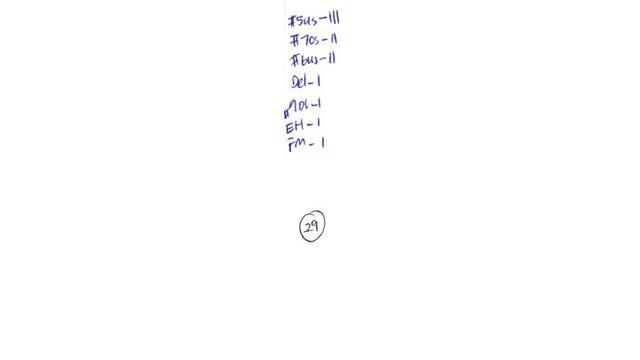 #5us-III
#70s-II
#6us-II
Del-I
#70s-I
EH-I
FM-I
29